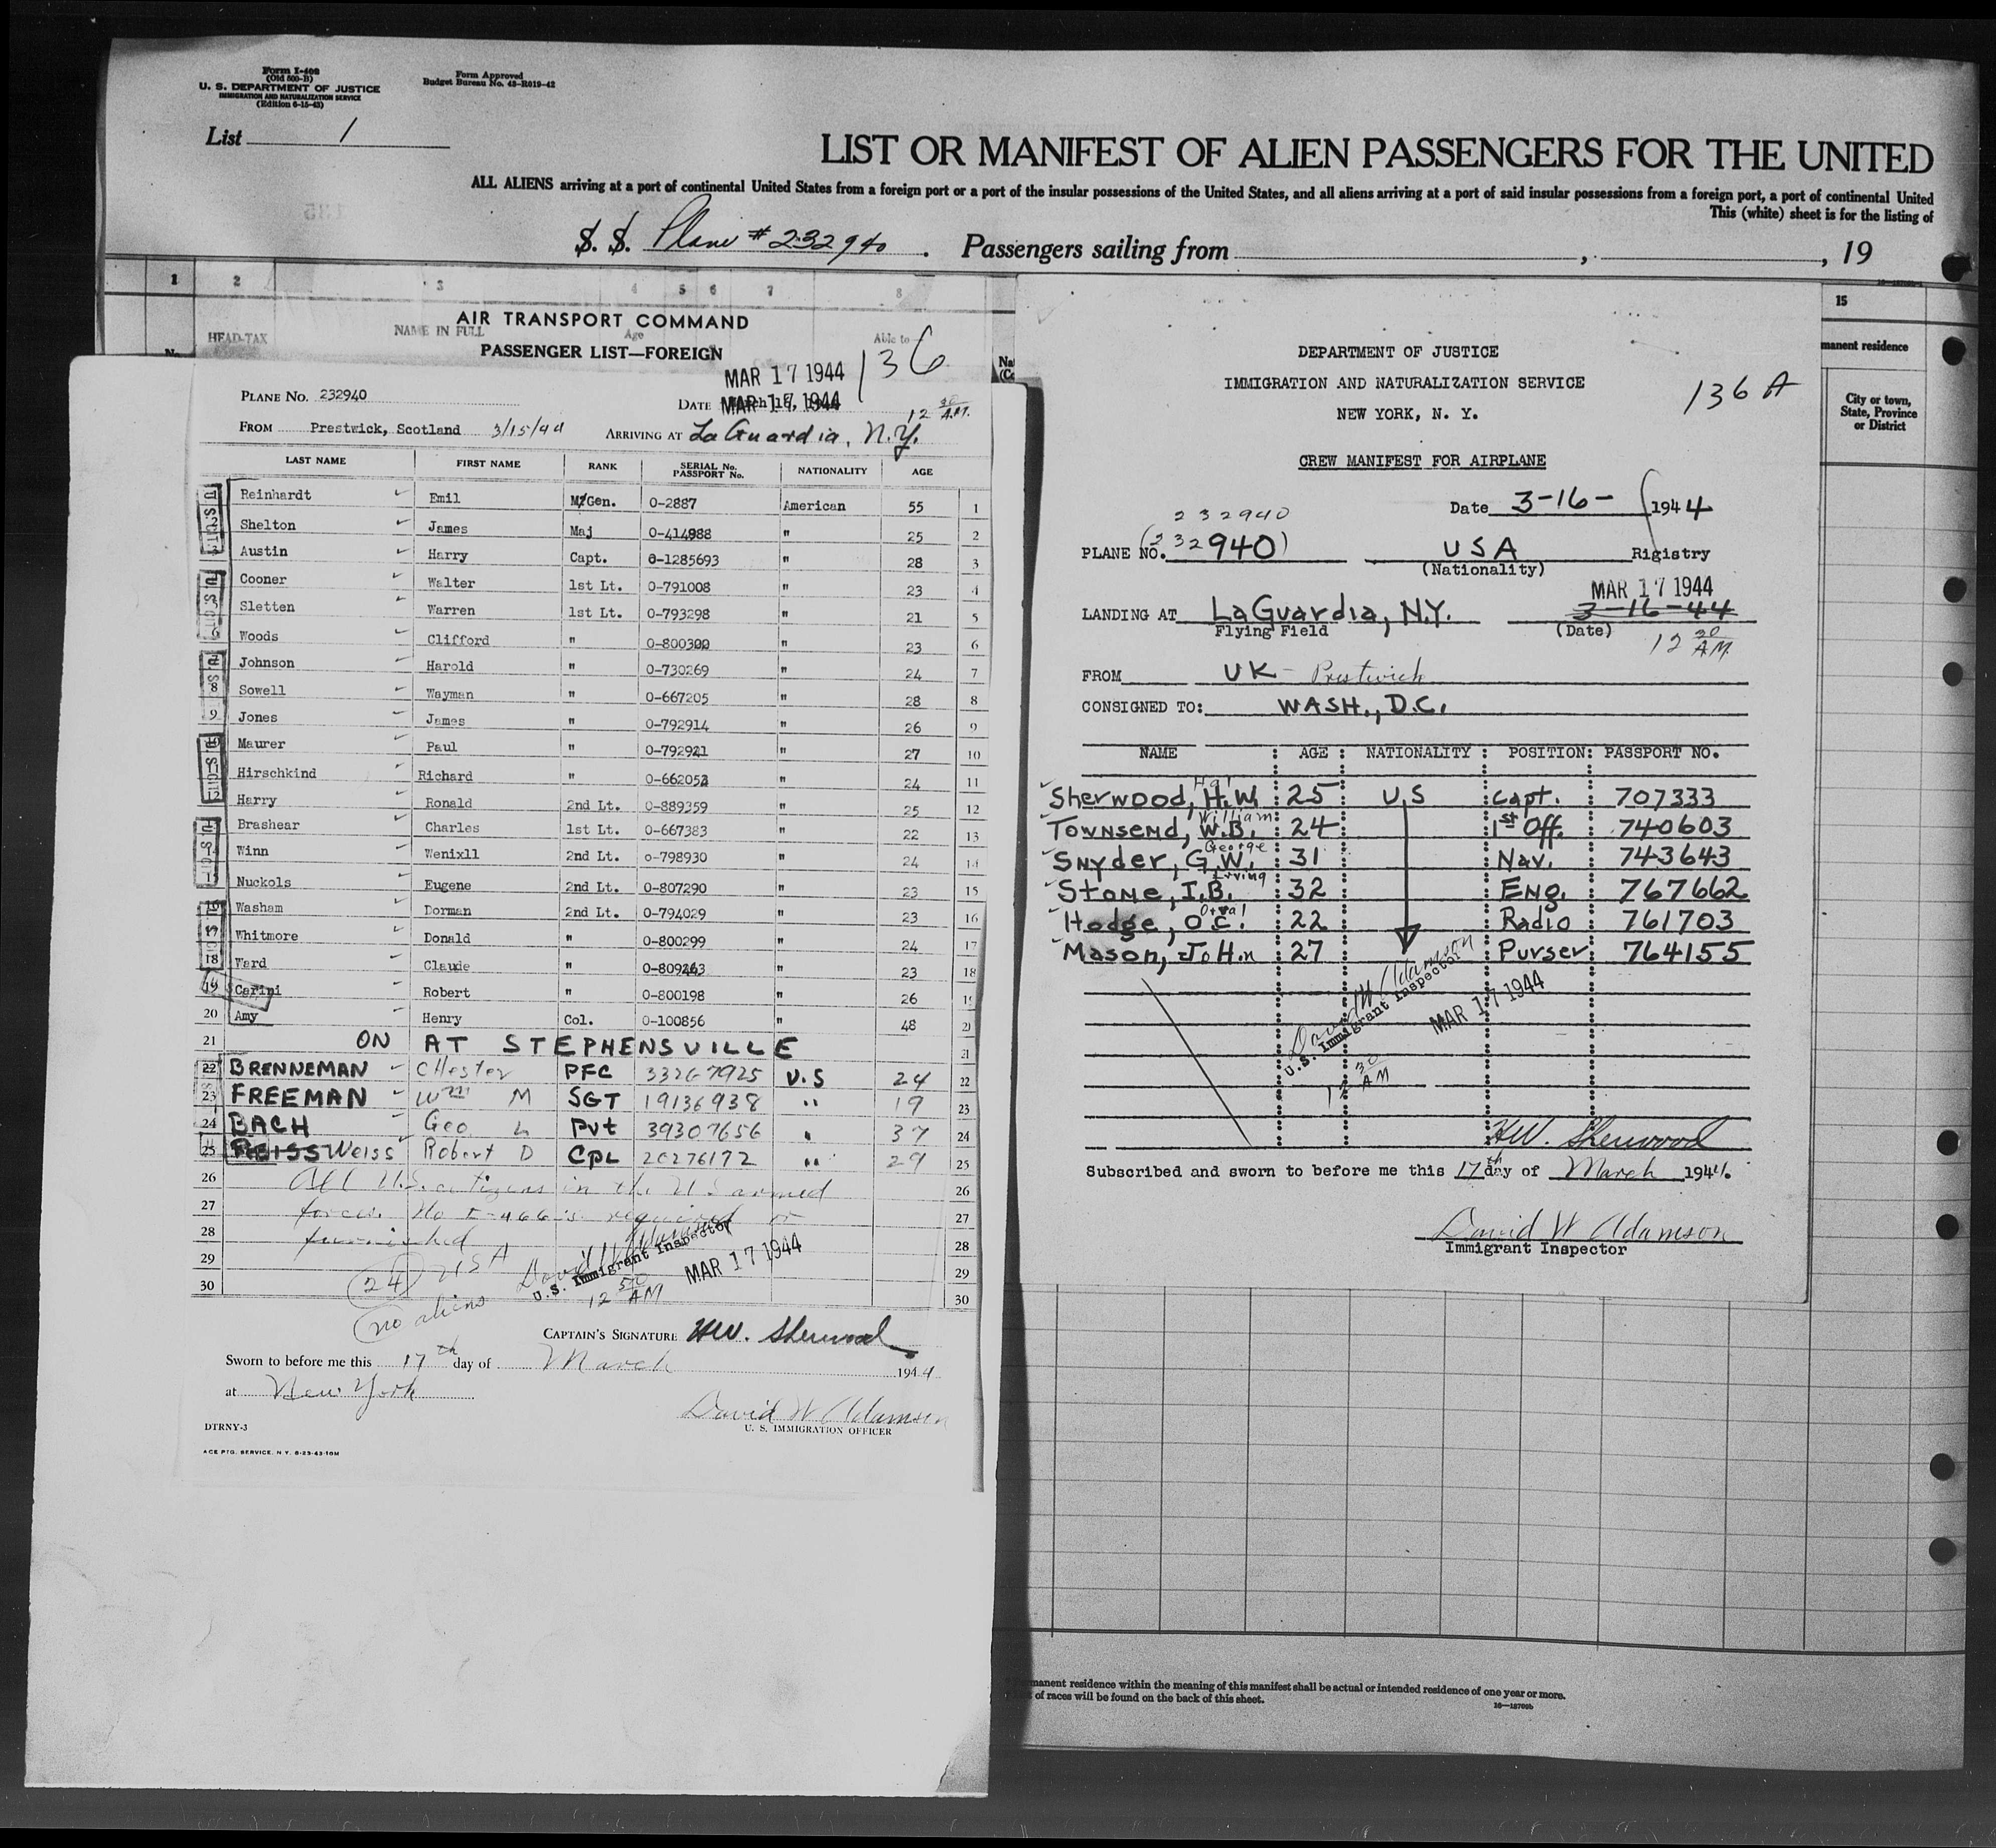 Form I-408
(Old 500-B)
U. S. DEPARTMENT OF JUSTICE
IMMIGRATION AND NATURALIZATION SERVICE
(Edition 6-15-43)
Form Approved
Budget Bureau No. 43-R019-42
List 1
LIST OR MANIFEST OF ALIEN PASSENGERS FOR THE UNITED
ALL ALIENS arriving at a port of continental United States from a foreign port or a port of the insular possessions of the United States, and all aliens arriving at a port of said insular possessions from a foreign port, a port of continental United
This (white) sheet is for the listing of
S. S. Plane # 232940. Passengers sailing from , , 19
1 2 3 4 5 6 7 8
HEAD-TAX NAME IN FULL Age Able to
AIR TRANSPORT COMMAND
PASSENGER LIST—FOREIGN
136
MAR 17 1944
PLANE NO. 232940 DATE MAR 17 1944
12 30 A.M.
FROM Prestwick, Scotland 3/15/44 ARRIVING AT La Guardia, N.Y.
LAST NAME FIRST NAME RANK SERIAL No. PASSPORT No. NATIONALITY AGE
Reinhardt Emil M/Gen. 0-2887 American 55 1
Shelton James Maj 0-414988 " 25 2
Austin Harry Capt. 0-1285693 " 28 3
Cooner Walter 1st Lt. 0-791008 " 23 4
Sletten Warren 1st Lt. 0-793298 " 21 5
Woods Clifford " 0-800300 " 23 6
Johnson Harold " 0-730269 " 24 7
Sowell Wayman " 0-667205 " 28 8
9 Jones James " 0-792914 " 26 9
Maurer Paul " 0-792921 " 27 10
Hirschkind Richard " 0-662052 " 24 11
12 Harry Ronald 2nd Lt. 0-889359 " 25 12
Brashear Charles 1st Lt. 0-667383 " 22 13
Winn Wenixll 2nd Lt. o-798930 " 24 14
Nuckols Eugene 2nd Lt. 0-807290 " 23 15
16 Washam Dorman 2nd Lt. 0-794029 " 23 16
Whitmore Donald " 0-800299 " 24 17
18 Ward Claude " 0-809263 " 23 18
19 Carini Robert " 0-800198 " 26 19
20 Amy Henry Col. 0-100856 " 48 20
21 ON AT STEPHENSVILLE 21
22 BRENNEMAN Chester PFC 33267925 U.S 24 22
23 FREEMAN Wm M SGT 19136938 " 19 23
24 BACH Geo L Pvt 39307656 " 37 24
25 REISS Weiss Robert D CPL 20276172 " 29 25
26 All U.S. citizens in the U S armed 26
27 forces. No I-466 is required or 27
28 furnished 28
29 (24) USA 29
30 no aliens 30
David W Adamson
U.S. Immigrant Inspector MAR 17 1944
12 30 AM
CAPTAIN'S SIGNATURE H.W. Sherwood
Sworn to before me this 17th day of March 1944
at New York
David W Adamson
U. S. IMMIGRATION OFFICER
DTRNY-3
ACE PTG. SERVICE. N.Y. 6-23-43-10M
DEPARTMENT OF JUSTICE
IMMIGRATION AND NATURALIZATION SERVICE
NEW YORK, N. Y.
136 A
CREW MANIFEST FOR AIRPLANE
Date 3-16- 1944
232940
PLANE NO. (232940) USA Rigistry
(Nationality)
MAR 17 1944
LANDING AT LaGuardia, N.Y. 3-16-44
Flying Field (Date)
12 30 AM
FROM UK - Prestwick
CONSIGNED TO: WASH., D.C.
NAME : AGE : NATIONALITY : POSITION: PASSPORT NO.
Hal
Sherwood, H.W. 25 U.S Capt. 707333
William
Townsend, W.B. 24 1st Off. 740603
George
Snyder, G.W. 31 Nav. 743643
Irving
Stone, I.B. 32 Eng. 767662
Hodge, O.C. 22 Radio 761703
Mason, JoHn 27 Purser 764155
David W Adamson
U.S. Immigrant Inspector
MAR 17 1944
12 30 AM
H.W. Sherwood
Subscribed and sworn to before me this 17th day of March 1944
David W Adamson
Immigrant Inspector
15
manent residence
City or town, State, Province or District
manent residence within the meaning of this manifest shall be actual or intended residence of one year or more.
of races will be found on the back of this sheet.